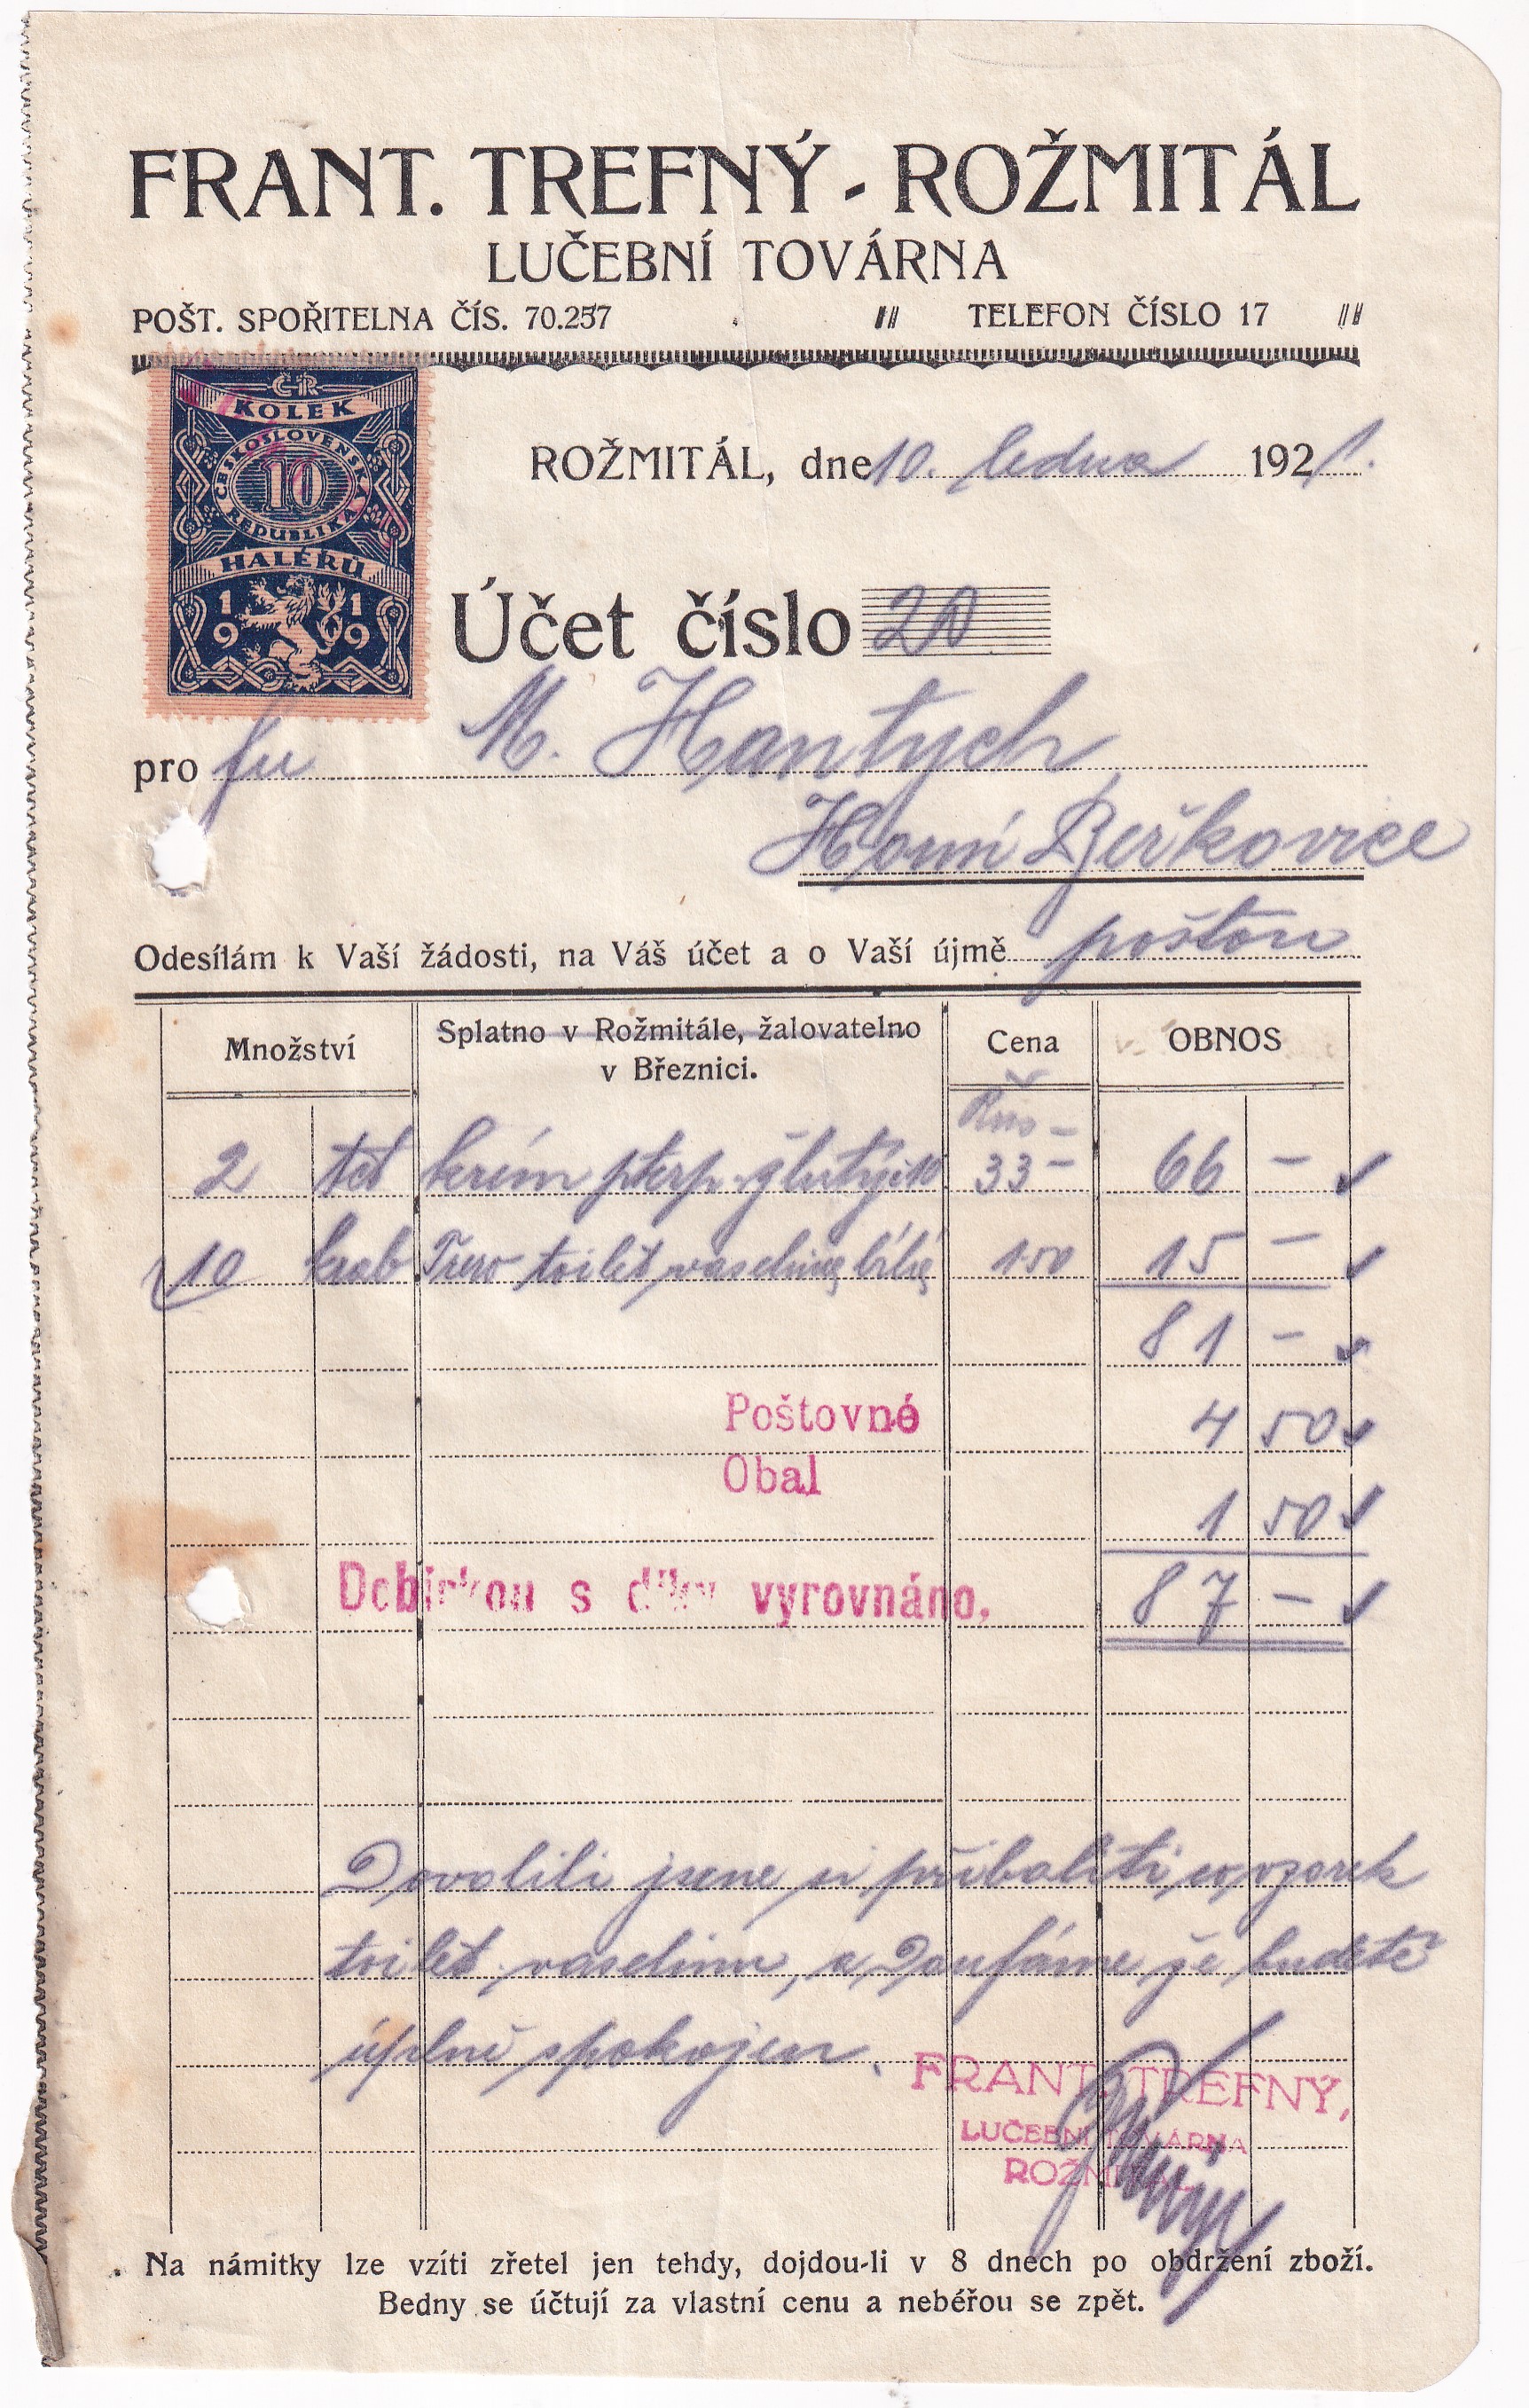 FRANT. TREFNÝ - ROŽMITÁL
LUČEBNÍ TOVÁRNA
POŠT. SPOŘITELNA ČÍS. 70.257 TELEFON ČÍSLO 17
ČR
KOLEK
ČESKOSLOVENSKÁ
10
REPUBLIKA
HALÉRŮ
1919
ROŽMITÁL, dne 10. ledna 1921.
Účet číslo 20
pro fu M. Hantych
Horní Beřkovice
Odesílám k Vaší žádosti, na Váš účet a o Vaší újmě poštou
Množství Splatno v Rožmitále, žalovatelno v Březnici. Cena OBNOS
2 tct krém žlutý 10 33- 66 -
10 krab toilet vaseliny bílé 1·50 15 -
81 -
Poštovné 4 50
Obal 1 50
Dobírkou s díky vyrovnáno. 87 -
Dovolili jsme si přibaliti vzorek
toilet. vaseliny, a doufáme že budete
úplně spokojen.
FRANT. TREFNÝ,
LUČEBNÍ TOVÁRNA
ROŽMITÁL
Na námitky lze vzíti zřetel jen tehdy, dojdou-li v 8 dnech po obdržení zboží.
Bedny se účtují za vlastní cenu a nebéřou se zpět.